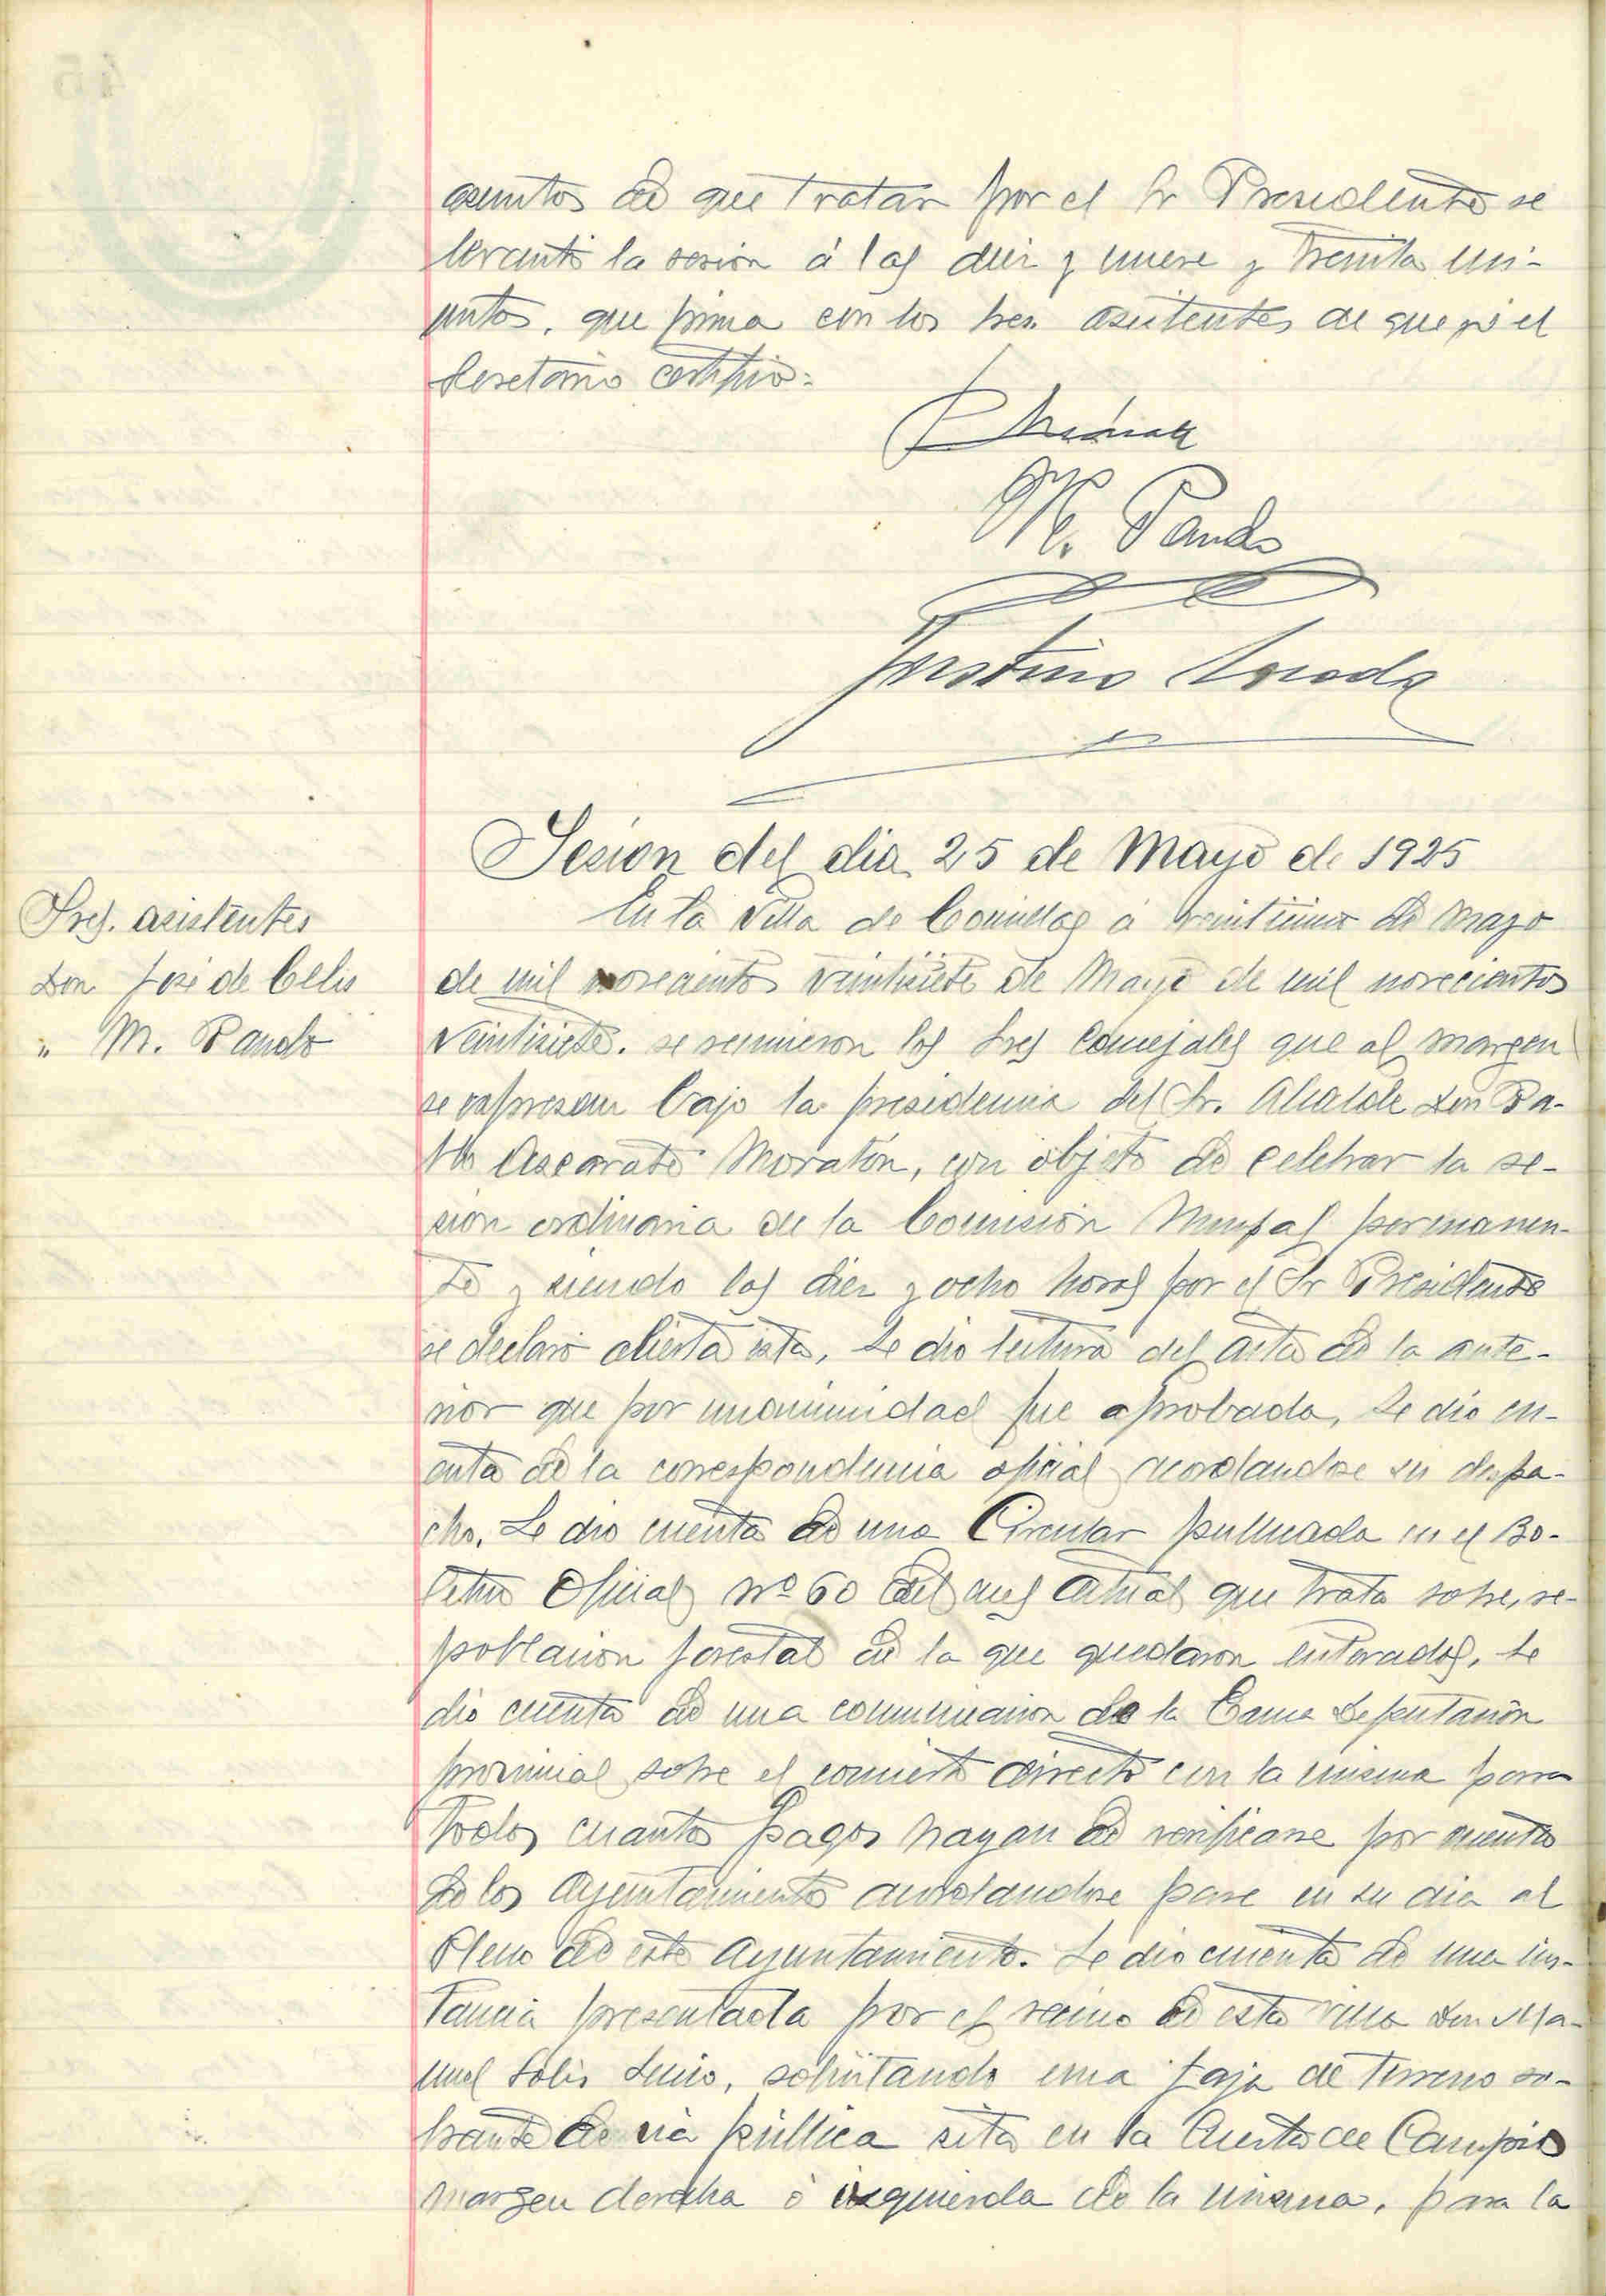 asuntos de que tratar por el Sr Presidente se
levantó la sesión á las diez y nueve y treinta mi-
nutos, que firma con los Sres. asistentes de que yo el
Secretario certifico:
M. Pando
Sesion del dia 25 de Mayo de 1925
Sres. asistentes
Don José de Celis
" M. Pando
En la Villa de Comillas á veinticinco de Mayo
de mil novecientos veintisiete de Mayo de mil novecientos
veintisiete. se reunieron los Sres Concejales que al margen
se expresan bajo la presidencia del Sr. Alcalde Don Pa-
blo Ascarate Moratón, con objeto de celebrar la se-
sion ordinaria de la Comisión Munpal permanen-
te y siendo las diez y ocho horas por el Sr Presidente
se declaró abierta esta, Se dio lectura del acta de la ante-
rior que por unanimidad fue aprobada, Se dio cu-
enta de la correspondencia oficial acordandose su despa-
cho. Se dio cuenta de una Circular publicada en el Bo-
letin Oficial nº 60 del mes actual que trata sobre, re-
poblacion forestal de la que quedaron enterados, Se
dio cuenta de una comunicacion de la Exma Deputación
provincial sobre el concierto directo con la misma para
todos cuantos pagos hayan de verificarse por cuenta
de los Ayuntamientos acordandose pase en su dia al
Pleno de este Ayuntamiento. Se dio cuenta de una ins-
tancia presentada por el vecino de esta villa Don Ma-
nuel Solis, solicitando una faja de terreno so-
brante de via pública sita en la Cuesta de Campios
margen derecha ó izquierda de la misma, para la